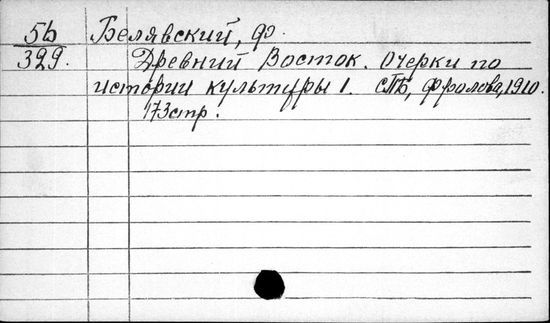 5b Белявский, Ф.
329. Древний Восток. Очерки по
истории культуры 1. СПБ, Фролова, 1910.
173стр.